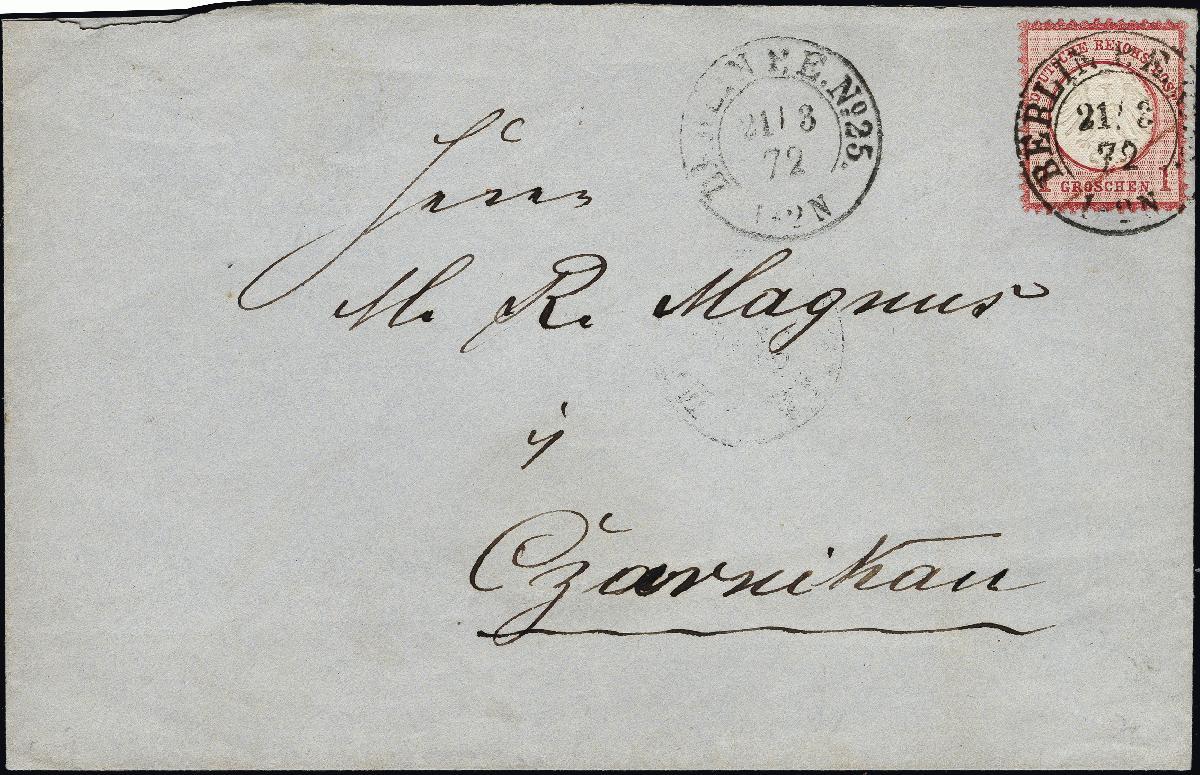 BERLIN P.E. No 25.
21/ 3
72
1-2N
DEUTSCHE REICHSPOST
BERLIN P.E.
21/ 3
72
1-2N
1 GROSCHEN 1
Herrn
M. R. Magnus
in
Czarnikau